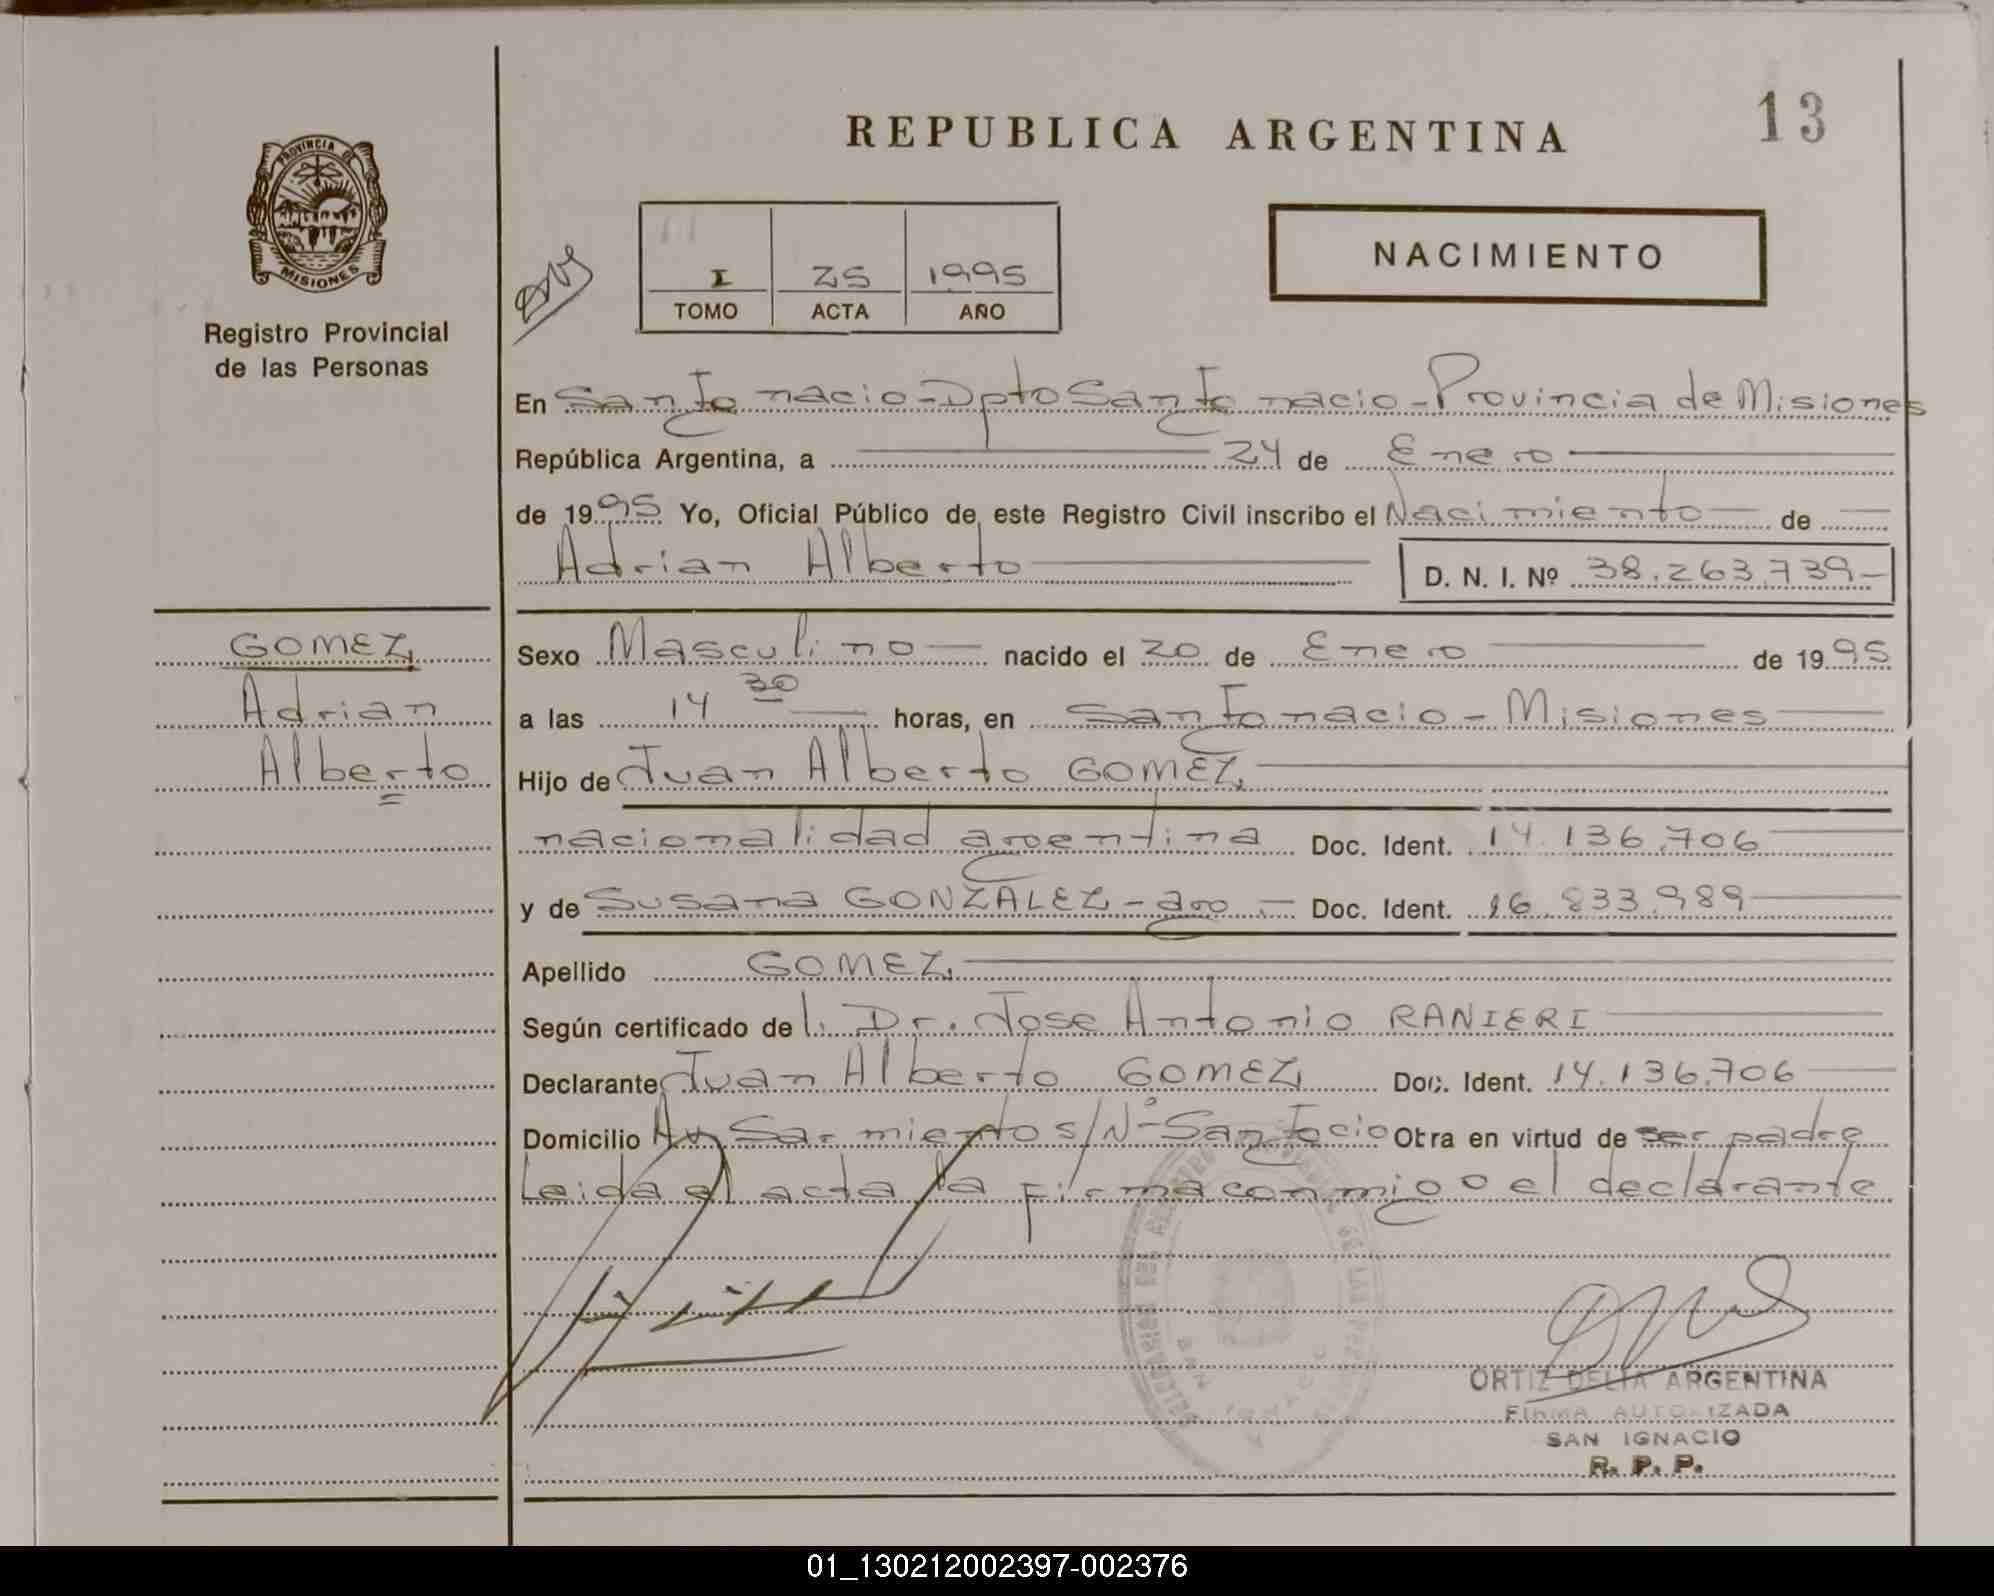 REPUBLICA ARGENTINA
13
PROVINCIA DE
MISIONES
Registro Provincial
de las Personas
I 25 1995
TOMO ACTA AÑO
NACIMIENTO
En San Ignacio - Dpto San Ignacio - Provincia de Misiones
República Argentina, a 24 de Enero
de 1995 Yo, Oficial Público de este Registro Civil inscribo el Nacimiento de
Adrian Alberto D. N. I. Nº 38.263.739-
GOMEZ,
Adrian
Alberto
Sexo Masculino nacido el 20 de Enero de 1995
a las 14 30 horas, en San Ignacio - Misiones
Hijo de Juan Alberto GOMEZ,
nacionalidad argentina Doc. Ident. 14.136.706
y de Susana GONZALEZ - arg. - Doc. Ident. 16.833.989
Apellido GOMEZ,
Según certificado de l: Dr. Jose Antonio RANIERI
Declarante Juan Alberto GOMEZ, Doc. Ident. 14.136.706
Domicilio Av Sarmiento s/Nº - San Igcio Otra en virtud de ser padre
Leida el acta la firma conmigo el declarante
ORTIZ DELIA ARGENTINA
FIRMA AUTORIZADA
SAN IGNACIO
R. P. P.
01_130212002397-002376